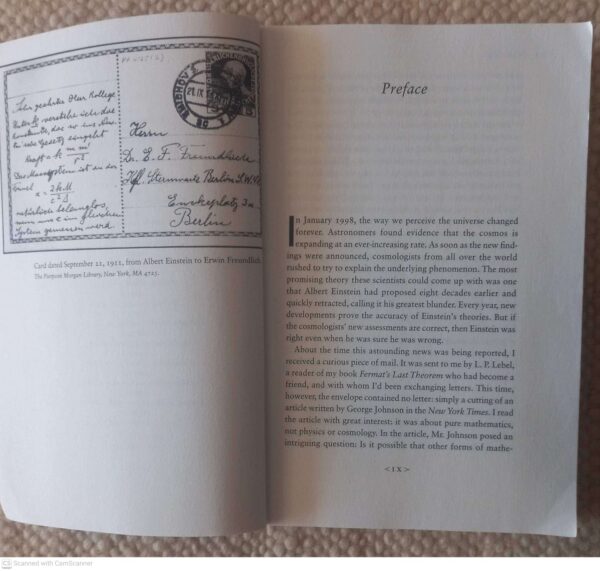 Herrn
Dr. E. F. Freundlich
Kgl. Sternwarte Berlin S.W. 48
Enckeplatz 3a.
Berlin
Sehr geehrter Herr Kollege
Card dated September 21, 1911, from Albert Einstein to Erwin Freundlich.
The Pierpont Morgan Library, New York, MA 4725.
Preface
In January 1998, the way we perceive the universe changed
forever. Astronomers found evidence that the cosmos is
expanding at an ever-increasing rate. As soon as the new find-
ings were announced, cosmologists from all over the world
rushed to try to explain the underlying phenomenon. The most
promising theory these scientists could come up with was one
that Albert Einstein had proposed eight decades earlier and
quickly retracted, calling it his greatest blunder. Every year, new
developments prove the accuracy of Einstein's theories. But if
the cosmologists' new assessments are correct, then Einstein was
right even when he was sure he was wrong.
About the time this astounding news was being reported, I
received a curious piece of mail. It was sent to me by L. P. Lebel,
a reader of my book Fermat's Last Theorem who had become a
friend, and with whom I'd been exchanging letters. This time,
however, the envelope contained no letter: simply a cutting of an
article written by George Johnson in the New York Times. I read
the article with great interest: it was about pure mathematics,
not physics or cosmology. In the article, Mr. Johnson posed an
intriguing question: Is it possible that other forms of mathe-
<IX>
CS Scanned with CamScanner